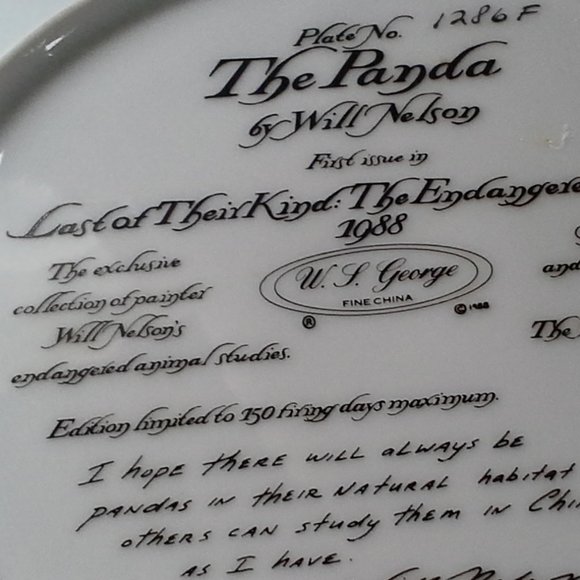 Plate No. 1286F
The Panda
by Will Nelson
First issue in
Last of Their Kind: The Endangere
1988
The exclusive
collection of painter
Will Nelson's
endangered animal studies.
W. S. George
FINE CHINA
® © 1988
and
The
Edition limited to 150 firing days maximum.
I hope there will always be
pandas in their natural habitat
others can study them in Chi
as I have.